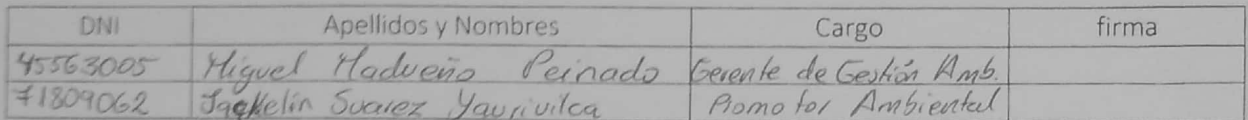 DNI Apellidos y Nombres Cargo firma
45563005 Miguel Madueño Peinado Gerente de Gestión Amb.
71809062 Jackelin Suarez Yaurivilca Promotor Ambiental